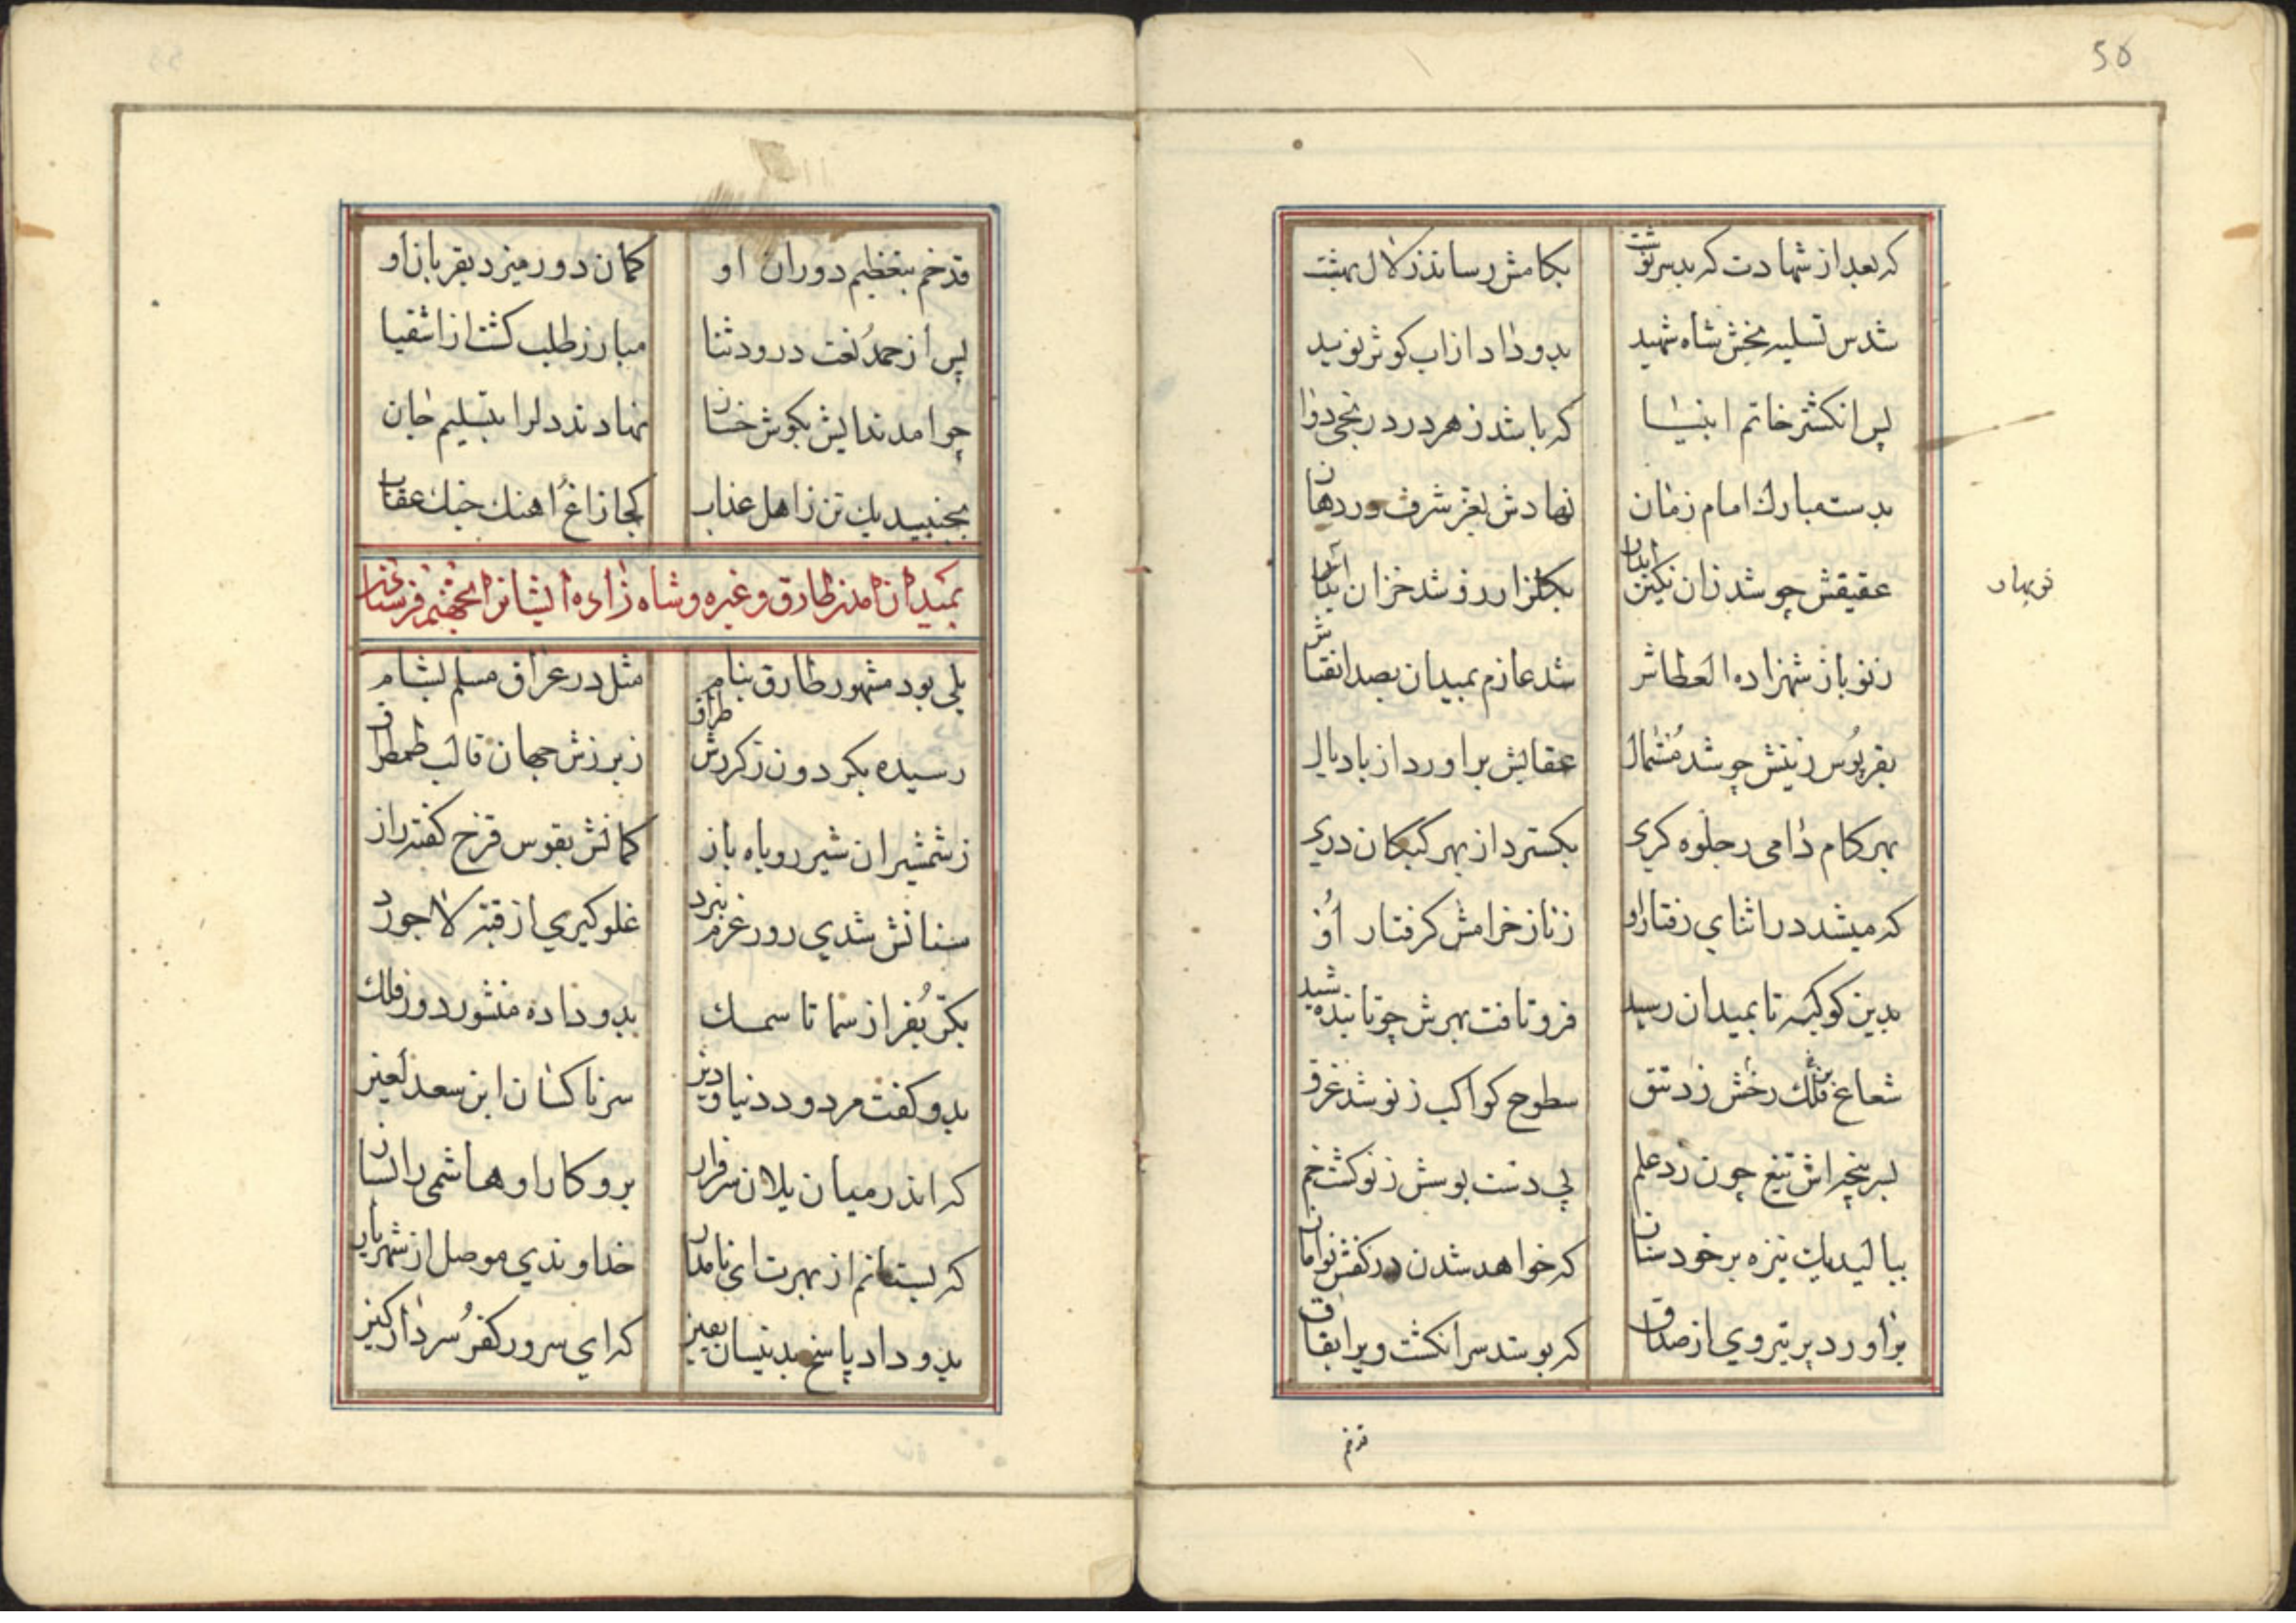 50
که بعد از شهادت که بد سرنوشت بکامش رساندند زلال بهشت
شدس تسلیه بخش شاه شهید بدو داد از آب کوثر نوید
پس انکشتر خاتم انبیا که باشد ز هر درد و رنجی دوا
بدست مبارک امام زمان نهادش بعز شرف در دهان
عقیقش چو شد زان نکین بکلزار رز شد خزان
نوبهار
ز نو باز شهزاده العطاش شد عازم بمیدان بصد انقتاش
بقرپوس زینش چو شد مشتمال عقابش براورد از باد بال
بهر کام دامی ز جلوه کری بکسترد از بهر کبکان دری
که میشد در اثنای رفتار او ز ناز خرامش کرفتار او
بدین کوکبه تا بمیدان رسید فرو تافت بهرش چو تابنده شید
شعاع فلک رخش زد تتق سطوح کواکب ز نو شد غرق
بسر پنجه اش تیغ چون زد علم پی دست بوسش ز نو کشت خم
ببالید یک نیزه بر خود سنان که خواهد شدن در کفش توامان
براورد پر تیر وی از صداق که بوسد سر انکشت ویرا بقاق
قد خم
قد خم بتعظیم دوران او کمان دور میزد بقربان او
پس از حمد نعت درود ثنا مبارز طلب کشت از اشقیا
چو امد ندایش بکوش خسان نهادند دلرا بتسلیم جان
بجنبید یک تن ز اهل عذاب کجا زاغ اهنک جنک عقاب
بمیدان امدن طارق و غیره و شاه زاده ایشانرا بجهنم فرستادن
یلی بود مشهور طارق بنام مثل در عراق مسلم بشام
رسیده بکردون ز کردش طراق ز برزش جهان قالب طمطراق
ز شمشیر ان شیر روباه باز کمانش بقوس قزح کفته راز
سنانش شدی روز عزم نبرد غلو کیری از قبه لاجورد
بکر بفر از سما تا سمک بدو داده منشور دور فلک
بدو کفت مردود دنیا و دین سر ناکسان ابن سعد لعین
که اندر میان یلان سرفراز برو کار او هاشمی را بساز
که بستانم از بهرت ای نامدار خداوندی موصل از شهریار
بدو داد پاسخ بدینسان یقین که ای سرور کفر سردار کین